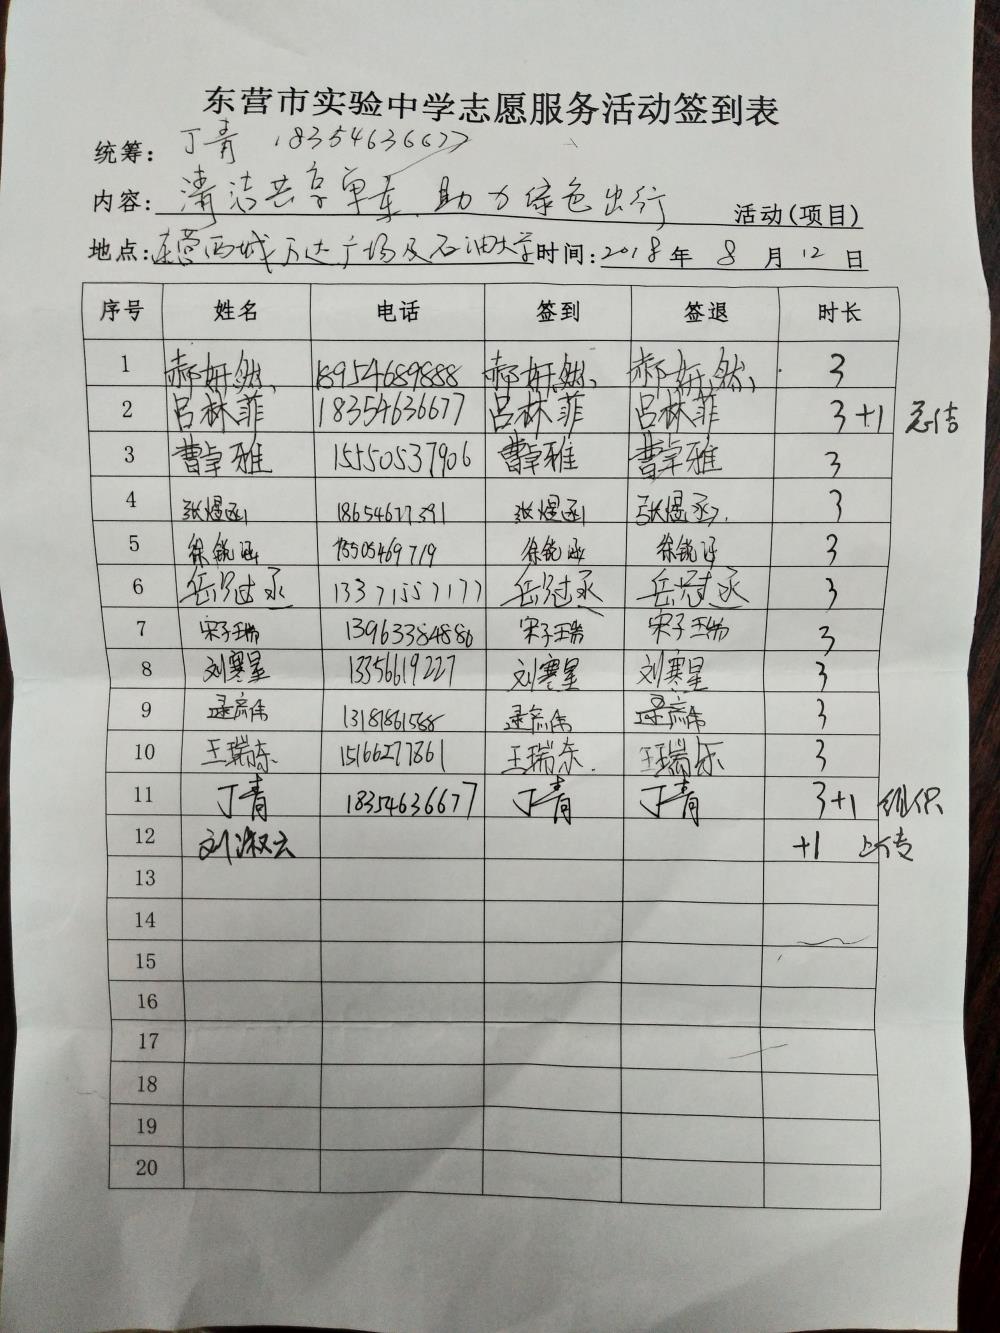 东营市实验中学志愿服务活动签到表
统筹: 丁青 18354636677
内容: 清洁共享单车,助力绿色出行 活动(项目)
地点: 东营西城万达广场及石油大学 时间: 2018 年 8 月 12 日
序号 姓名 电话 签到 签退 时长
1 郝妍然 18954689888 郝妍然 郝妍然 3
2 吕林菲 18354636677 吕林菲 吕林菲 3+1 总结
3 曹卓雅 15550537906 曹卓雅 曹卓雅 3
4 张煜函 18654677391 张煜函 张煜函 3
5 徐锐涵 18505469719 徐锐涵 徐锐涵 3
6 岳冠丞 13371557177 岳冠丞 岳冠丞 3
7 宋子瑞 13963384886 宋子瑞 宋子瑞 3
8 刘寒星 13356619227 刘寒星 刘寒星 3
9 13181861568 3
10 王瑞东 15166277861 王瑞东 王瑞东 3
11 丁青 18354636677 丁青 丁青 3+1 组织
12 刘淑云 +1 上传
13
14
15
16
17
18
19
20